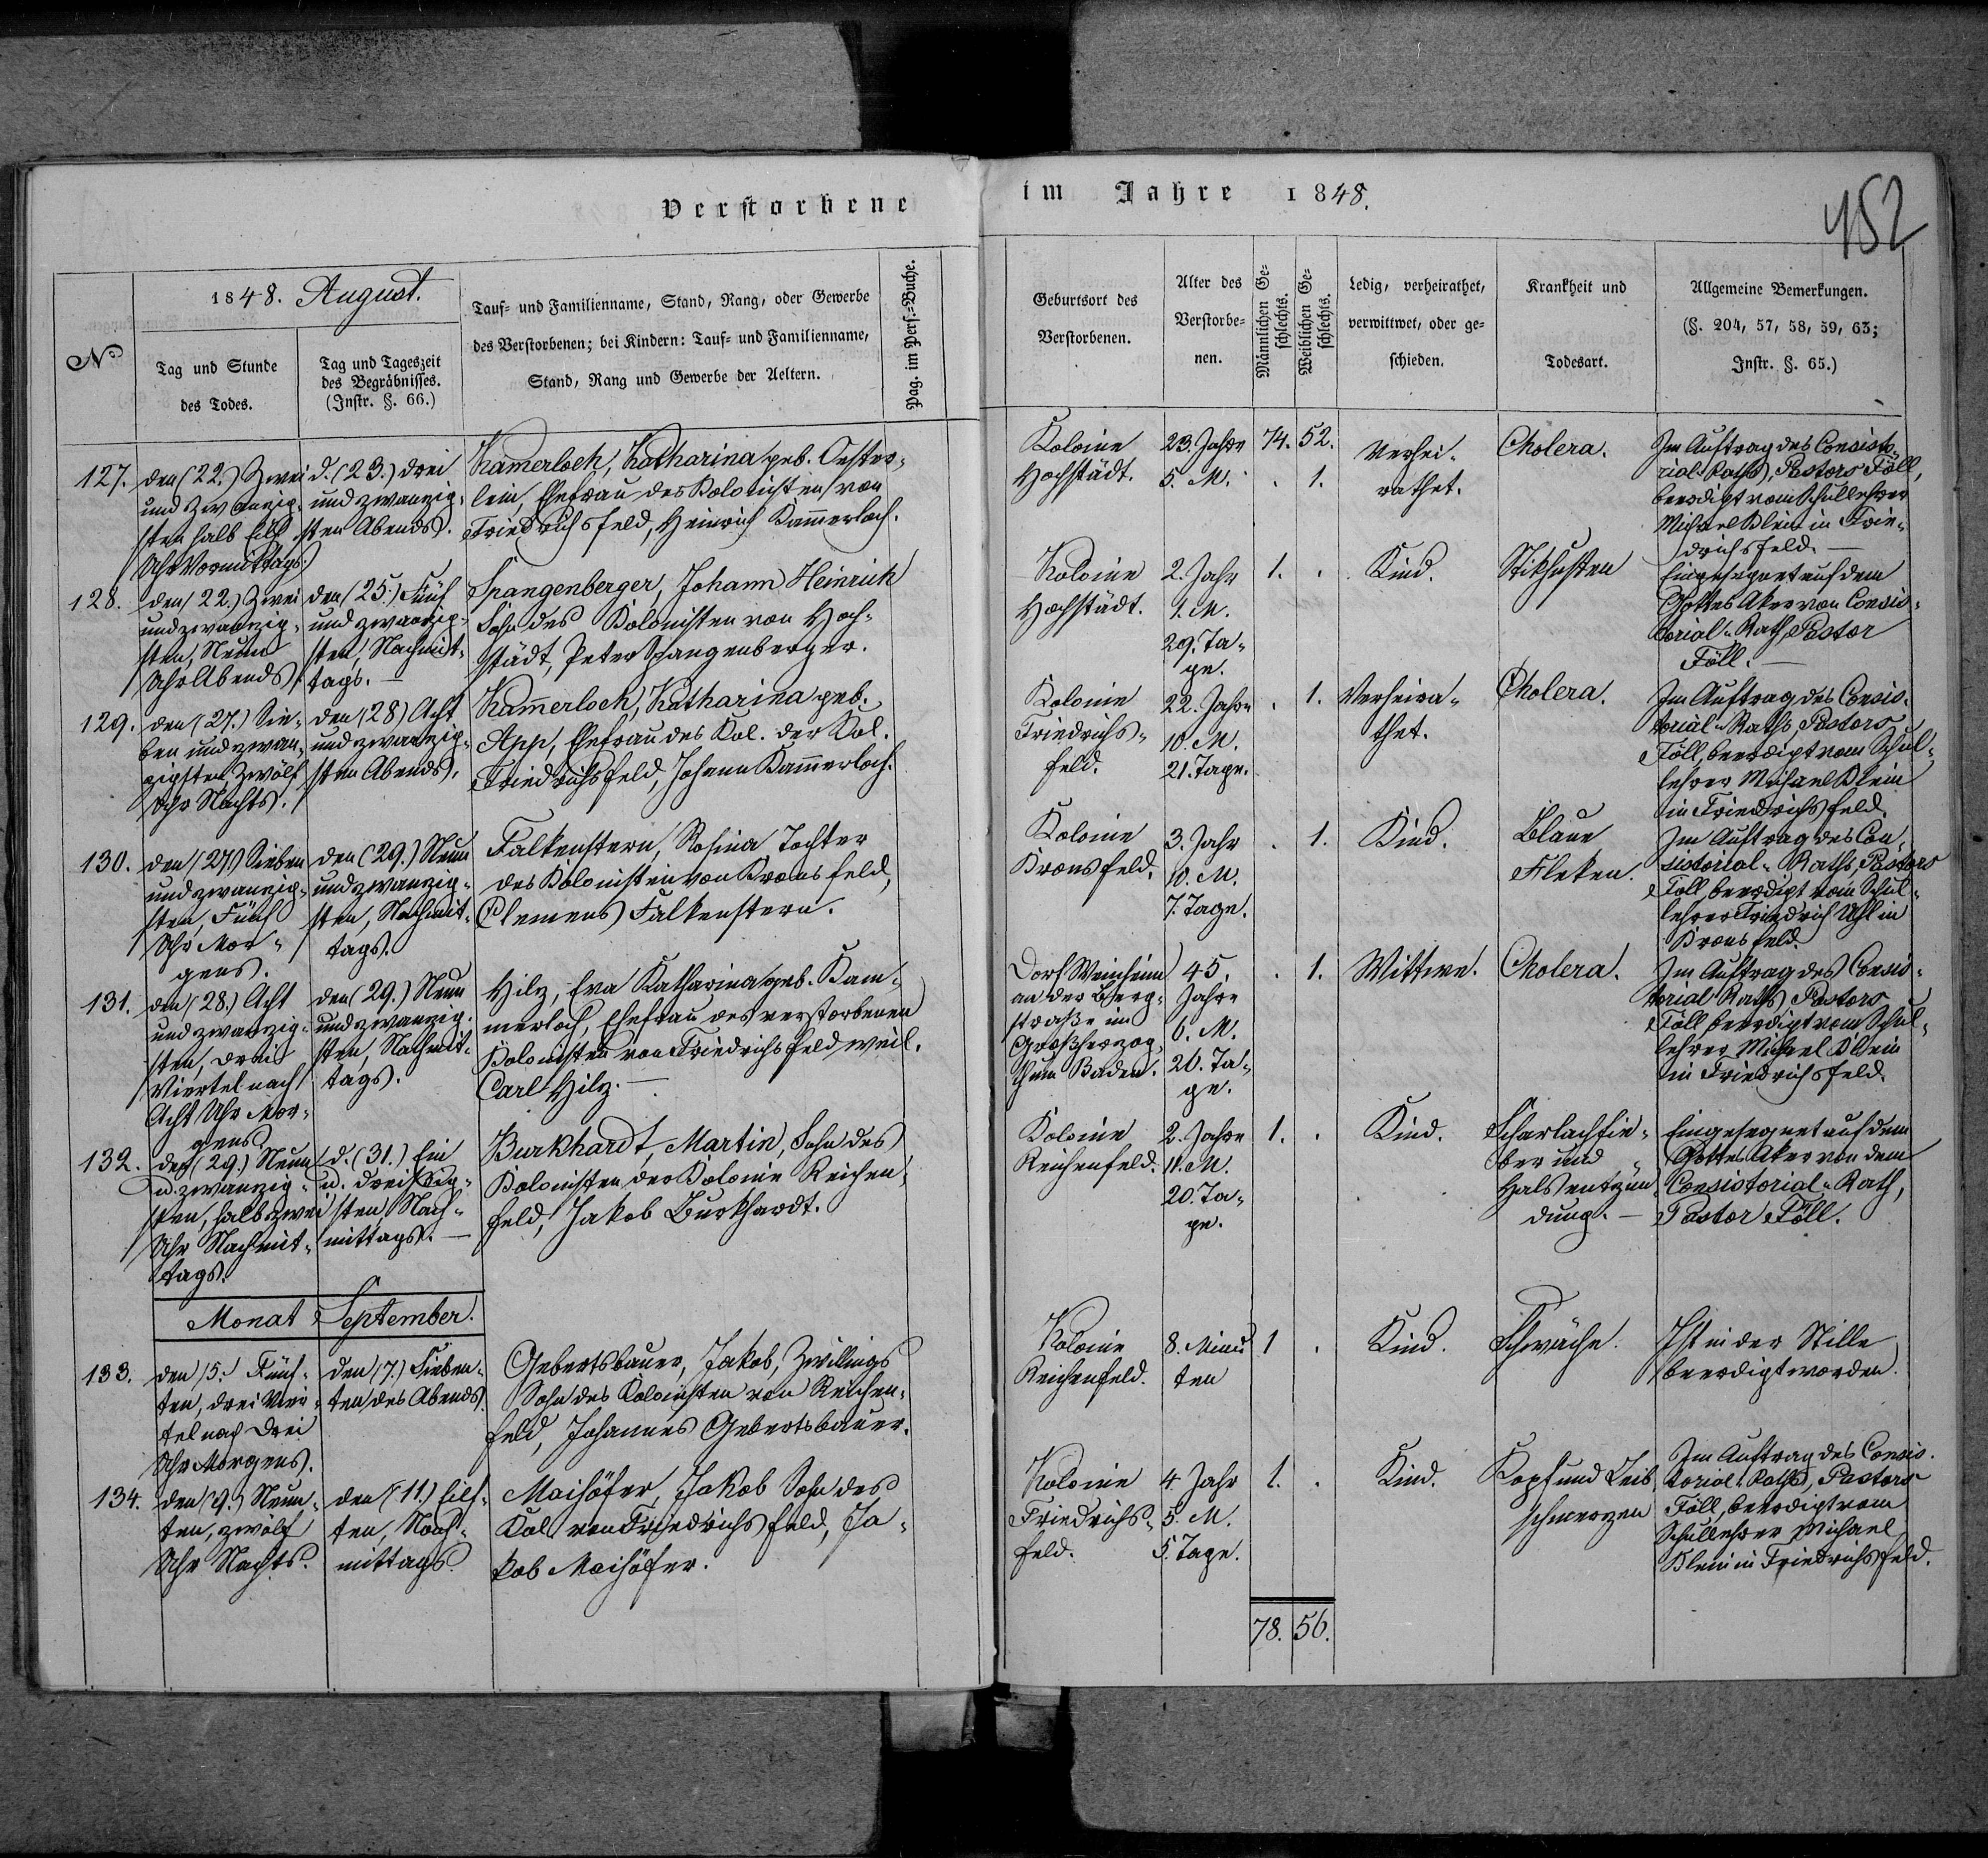 Verstorbene
im Jahre 1848.
452
1848. August.
No
Tag und Stunde
des Todes.
Tag und Tageszeit
des Begräbnisses.
(Instr. §. 66.)
Tauf- und Familienname, Stand, Rang, oder Gewerbe
des Verstorbenen; bei Kindern: Tauf- und Familienname,
Stand, Rang und Gewerbe der Aeltern.
Pag. im Pers.-Buche.
Geburtsort des
Verstorbenen.
Alter des
Verstorbe-
nen.
Männlichen Ge-
schlechts.
Weiblichen Ge-
schlechts.
Ledig, verheirathet,
verwittwet, oder ge-
schieden.
Krankheit und
Todesart.
Allgemeine Bemerkungen.
(§. 204, 57, 58, 59, 63;
Instr. §. 65.)
127.
den (22.) Zwei
und zwanzig-
sten halb Eilf
Uhr Vormittags.
d. (23.) drei
und zwanzig-
sten Abends.
Kamerloch, Katharina geb. Oester-
lein, Ehefrau des Kolonisten von
Friedrichsfeld, Heinrich Kamerloch.
Kolonie
Hochstädt.
23. Jahre
5. M.
74. 52.
. 1.
Verhei-
rathet.
Cholera.
Im Auftrag des Consisto-
rial-Raths, Pastors Föll,
beerdigt vom Schullehrer
Michael Klein in Frie-
drichsfeld. —
128.
den (22.) Zwei
und zwanzig-
sten, Neun
Uhr Abends
den (25.) Fünf
und zwanzig-
sten, Nachmit-
tags. —
Spangenberger, Johann Heinrich
Sohn des Kolonisten von Hoch-
städt, Peter Spangenberger.
Kolonie
Hochstädt.
2. Jahr
1. M.
29. Ta-
ge.
1. .
Kind.
Stikhusten
Eingesegnet auf dem
Gottes Aker von Consis-
torial-Rath, Pastor
Föll. —
129.
den (27.) Sie-
ben und zwan-
zigsten Zwölf
Uhr Nachts.
den (28) Acht
und zwanzig-
sten Abends.
Kamerloch, Katharina geb.
App, Ehefrau des Kol. der Kol.
Friedrichsfeld, Johann Kamerloch.
Kolonie
Friedrichs-
feld.
22. Jahre
10. M.
21. Tage.
. 1.
Verheira-
thet.
Cholera.
Im Auftrag des Consis-
torial-Raths, Pastors
Föll, beerdigt vom Schul-
lehrer Michael Klein
in Friedrichsfeld.
130.
den (27.) Sieben
und zwanzig-
sten, Fünf
Uhr Mor-
gens.
den (29.) Neun
und zwanzig-
sten, Nachmit-
tags.
Falkenstern, Rosina Tochter
des Kolonisten von Kronsfeld,
Clemens Falkenstern.
Kolonie
Kronsfeld.
3. Jahr
10. M.
7. Tage.
. 1.
Kind.
Blaue
Fleken.
Im Auftrag des Con-
sistorial-Raths, Pastors
Föll, beerdigt vom Schul-
lehrer Friedrich Uhl in
Kronsfeld.
131.
den (28.) Acht
und zwanzig-
sten, drei
Viertel nach
Acht Uhr Mor-
gens
den (29.) Neun
und zwanzig-
sten, Nachmit-
tags.
Hilz, Eva Katharina geb. Kam-
merloch, Ehefrau des verstorbenen
Kolonisten von Friedrichsfeld weil.
Carl Hilz. —
Dorf Weinheim
an der Berg-
straße im
Großherzog-
thum Baden.
45.
Jahre
6. M.
20. Ta-
ge.
. 1.
Wittwe.
Cholera.
Im Auftrag des Consis-
torial Raths Pastors
Föll, beerdigt vom Schul-
lehrer Michael Klein
in Friedrichsfeld.
132.
den (29.) Neun
u. zwanzig-
sten, halb zwei
Uhr Nachmit-
tags.
d. (31.) Ein
u. dreißig-
sten, Nach-
mittags. —
Burkhardt, Martin, Sohn des
Kolonisten der Kolonie Reichen-
feld, Jakob Burkhardt.
Kolonie
Reichenfeld.
2. Jahre
11. M.
20. Ta-
ge.
1. .
Kind.
Scharlachfie-
ber und
Halsentzün-
dung. —
Eingesegnet auf dem
Gottes Aker von dem
Consistorial-Rath,
Pastor Föll.
Monat September.
133.
den 5. Fünf-
ten, drei Vier-
tel nach Drei
Uhr Morgens.
den (7.) Sieben-
ten des Abends.
Gebertsbauer, Jakob, Zwillings
Sohn des Kolonisten von Reichen-
feld, Johannes Gebertsbauer.
Kolonie
Reichenfeld.
8. Minu
ten
1 .
Kind.
Schwäche.
Ist in der Stille
beerdigt worden.
134.
den (9.) Neun-
ten, zwölf
Uhr Nachts.
den (11.) Eilf-
ten, Nach-
mittags.
Maihöfer, Jakob Sohn des
Kol. von Friedrichsfeld, Ja-
kob Maihöfer.
Kolonie
Friedrichs-
feld.
4. Jahr
5. M.
5. Tage.
1. .
Kind.
Kopf und Leib
schmerzen
Im Auftrag des Consis-
torial-Raths, Pastors
Föll, beerdigt vom
Schullehrer Michael
Klein in Friedrichsfeld.
78. 56.